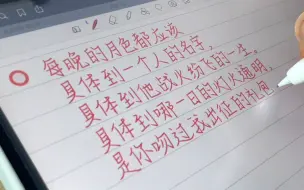 每晚的月色都应该
具体到一个人的名字。
具体到他战火纷飞的一生。
具体到哪一日的灯火透明，
是你吻过我出征的礼